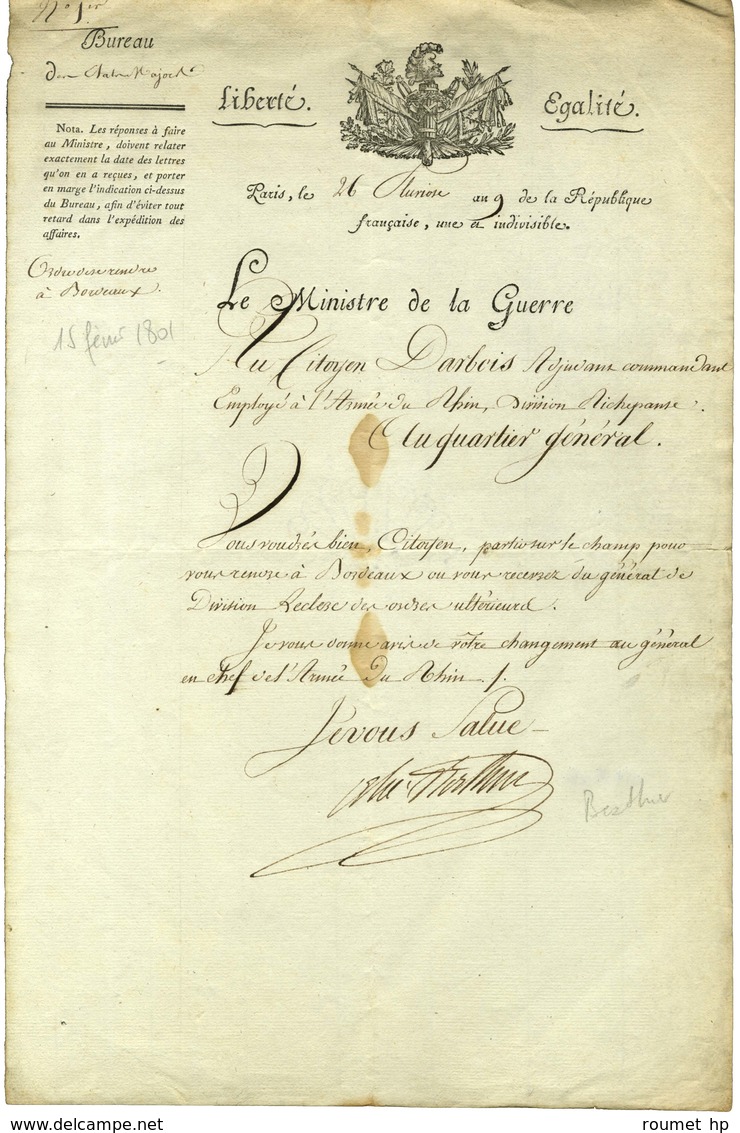 N° 1er
Bureau
des États-Majors
Nota. Les réponses à faire
au Ministre, doivent relater
exactement la date des lettres
qu'on en a reçues, et porter
en marge l'indication ci-dessus
du Bureau, afin d'éviter tout
retard dans l'expédition des
affaires.
Ordre de se rendre
à Bordeaux.
15 févri 1801
Liberté.
Egalité.
Paris, le 26 Pluviose an 9 de la République
française, une et indivisible.
Le Ministre de la Guerre
Au Citoyen Darbois Adjudant commandant
Employé à l'Armée du Rhin, Division Richepanse.
Au quartier général.
Vous voudrés bien, Citoyen, partir sur le champ pour
vous rendre à Bordeaux ou vous recevrez du général de
Division Leclerc des ordres ultérieurs.
Je vous donne avis de votre changement au général
en chef de l'Armée du Rhin ./.
Je vous Salue
Alex. Berthier
Berthier
roumet hp
www.delcampe.net